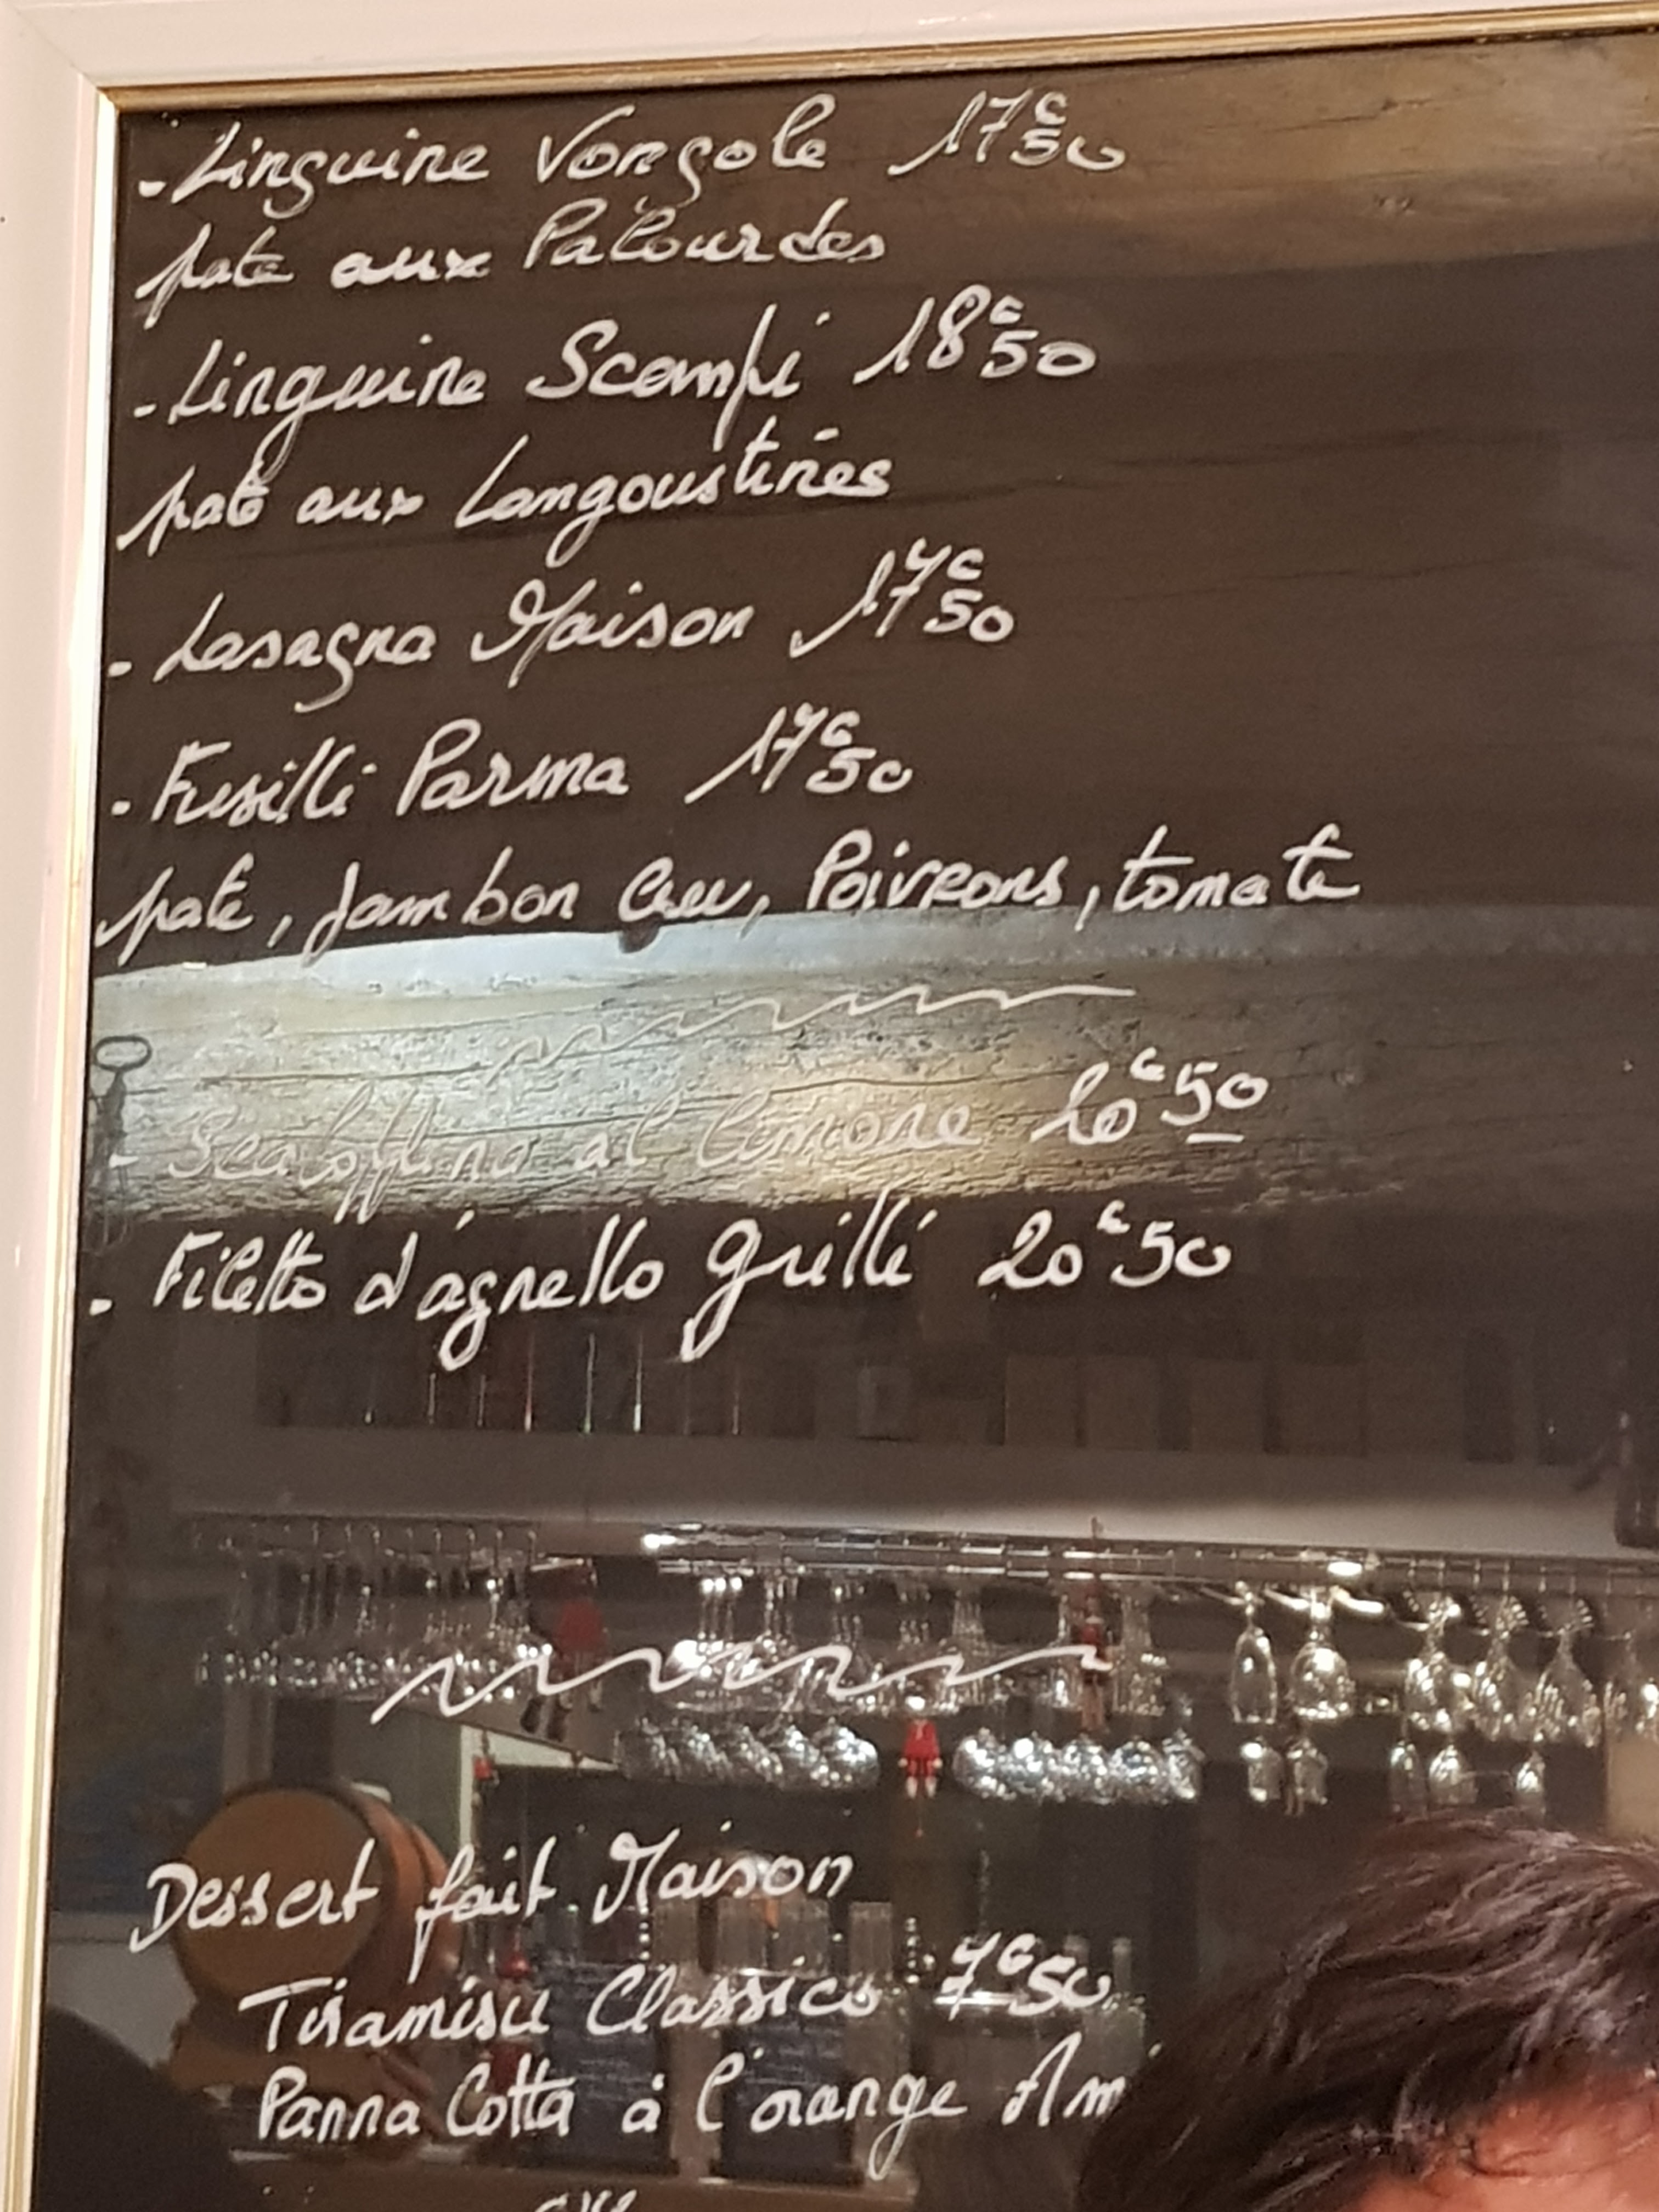 - Linguine Vongole 17€50
pate aux Palourdes
- Linguine Scampi 18€50
pate aux Langoustines
- Lasagna Maison 17€50
- Fusilli Parma 17€50
pate, Jambon Cru, Poivrons, tomate
- Scaloppina al limone 20€50
- Filetto d'agnello grillé 20€50
Dessert fait Maison
Tiramisu Classico 7€50
Panna Cotta à l'orange Am